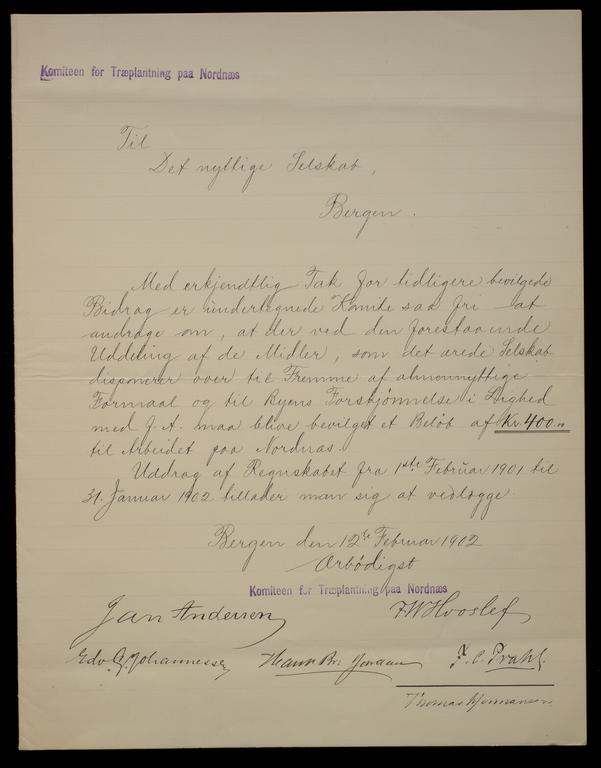 Komiteen for Træplantning paa Nordnæs
Til
Det nyttige Selskab,
Bergen.
Med erkjendtlig Tak for tidligere bevilgede
Bidrag er undertegnede Komite saa fri at
andrage om, at der ved den forestaaende
Uddeling af de Midler, som det ærede Selskab
disponerer over til Fremme af almennyttige
Formaal og til Byens Forskjønnelse i Lighed
med f. A. maa blive bevilget et Beløb af Kr. 400.
til Arbeidet paa Nordnæs.
Uddrag af Regnskabet fra 1ste Februar 1901 til
31. Januar 1902 tillader man sig at vedlægge.
Bergen den 12te Februar 1902
Ærbødigst
Komiteen for Træplantning paa Nordnæs
Jan Andersen FW Hvoslef
Edv. G. Johannessen F. C. Prahl.
Thomas